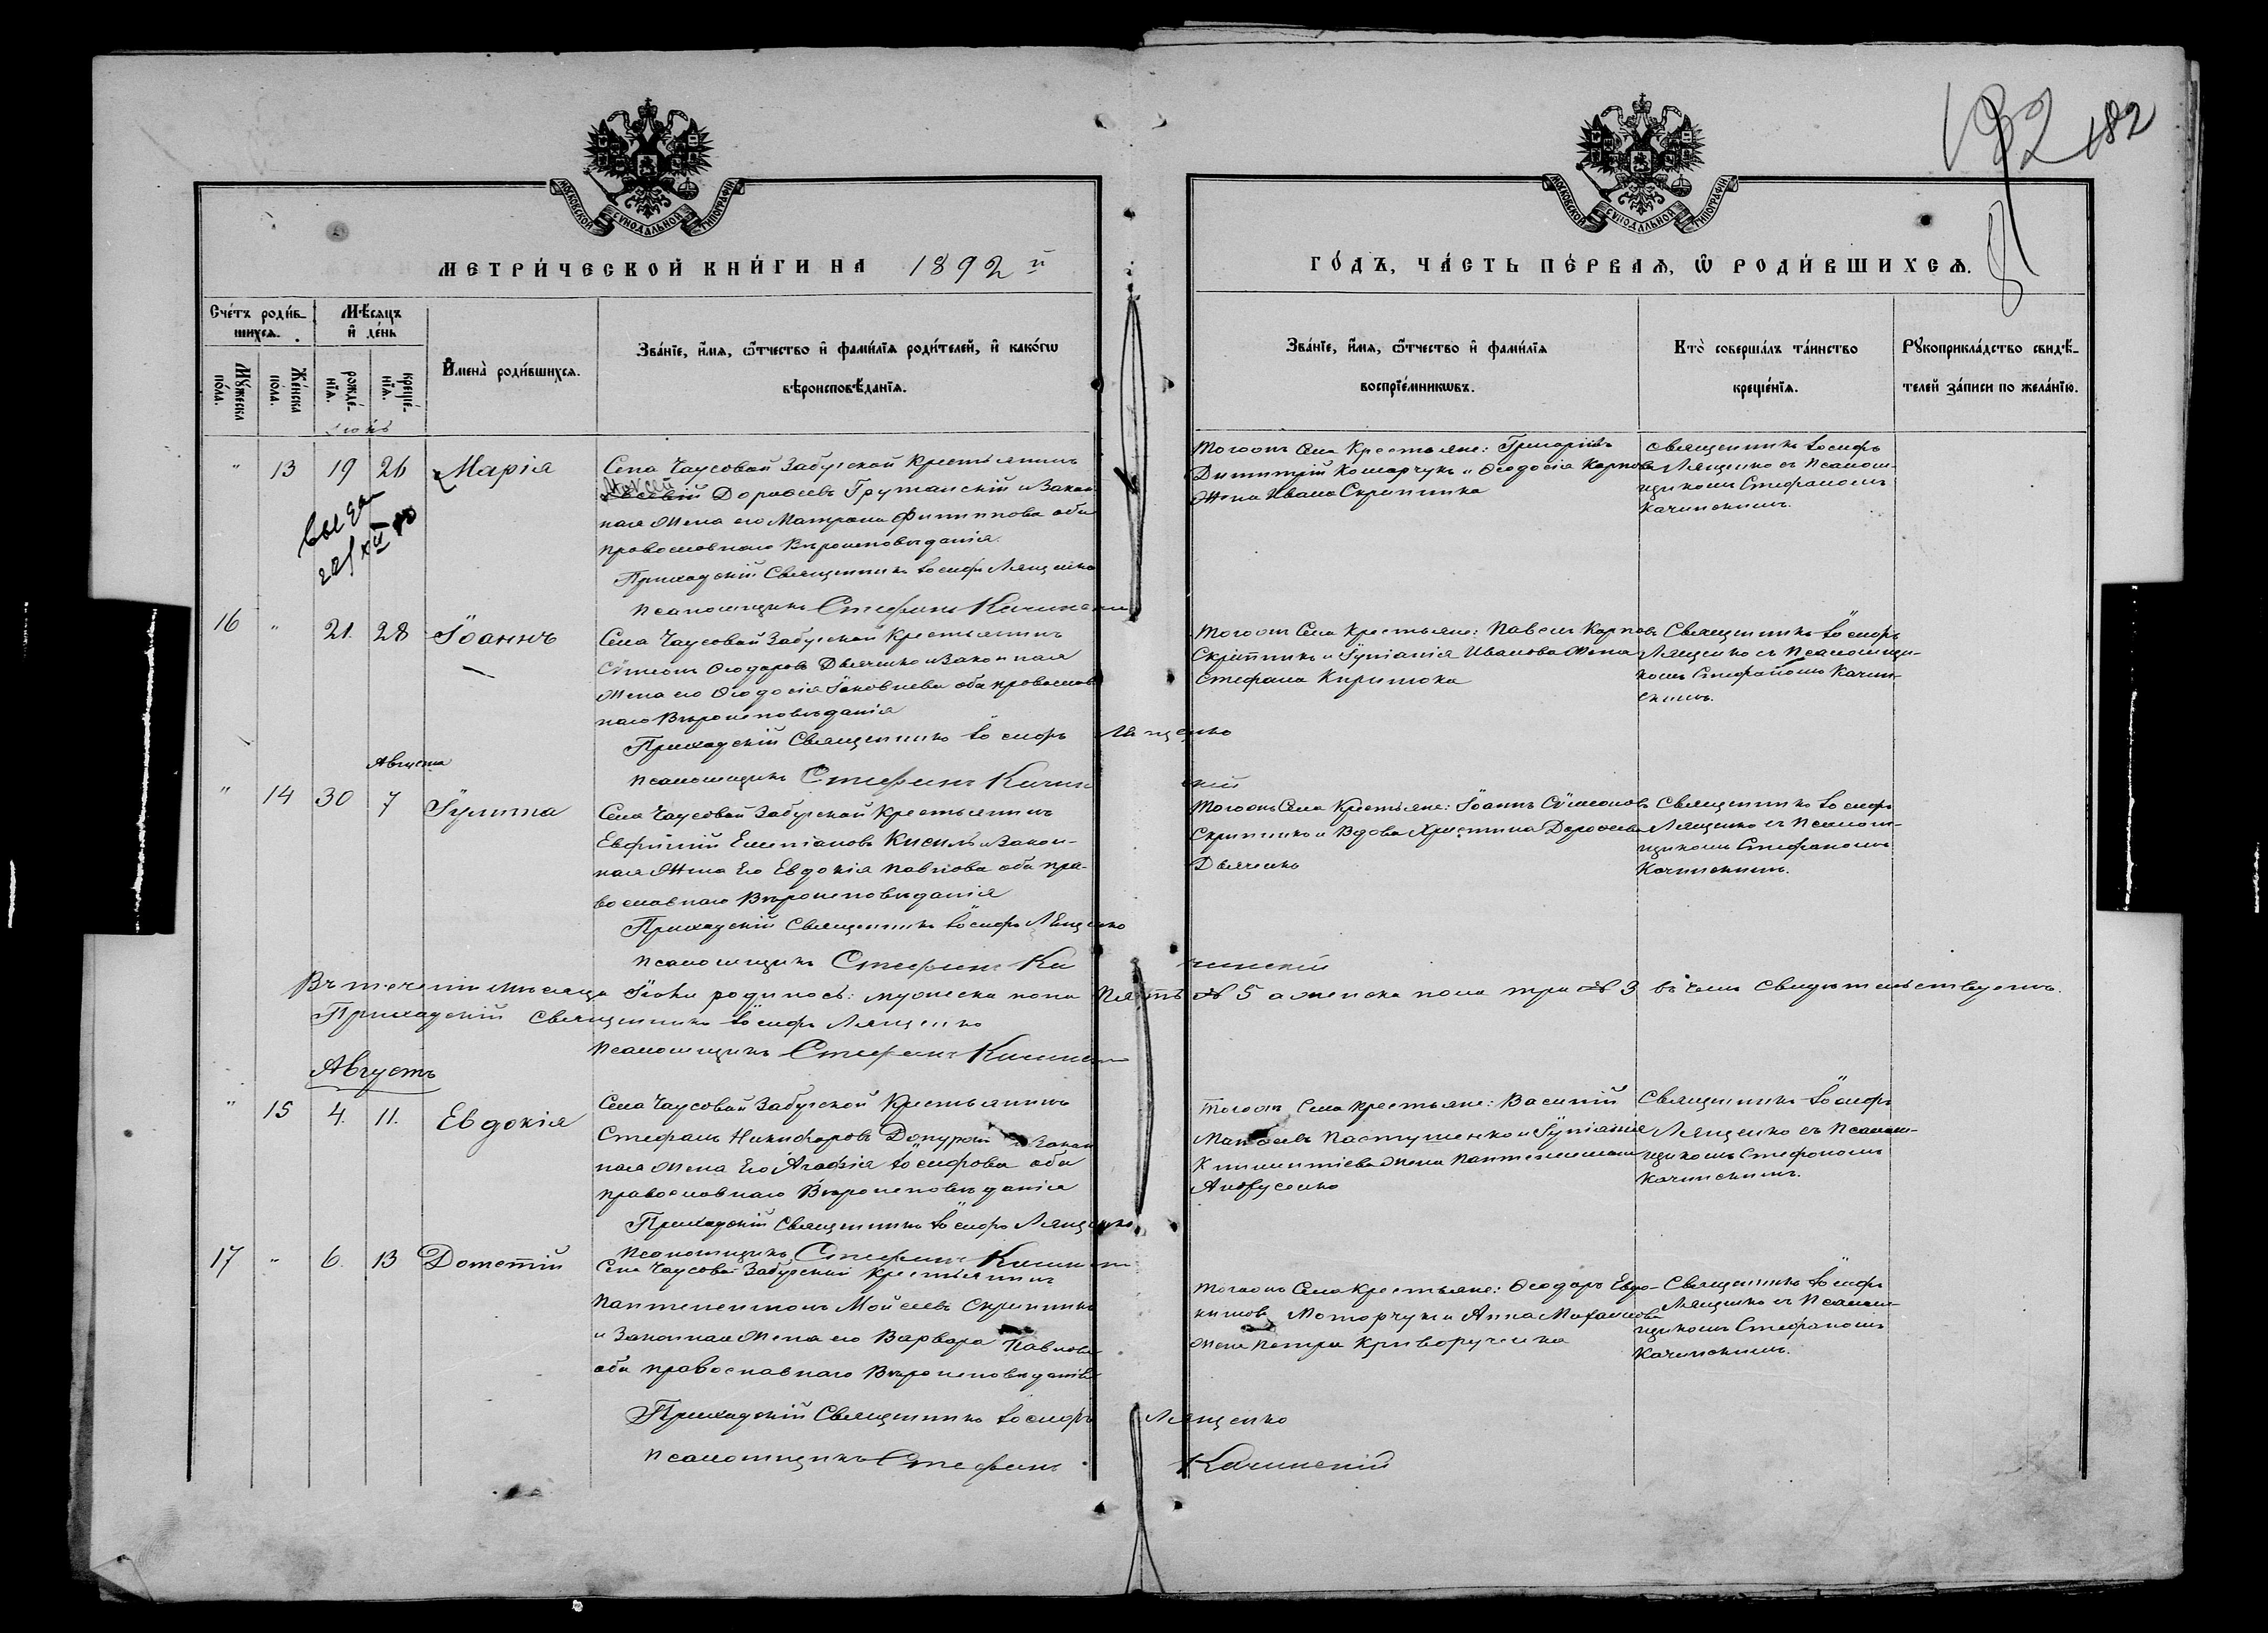 182 182
МОСКОВСКОЙ СѴНОДАЛЬНОЙ ТИПОГРАФІИ
МОСКОВСКОЙ СѴНОДАЛЬНОЙ ТИПОГРАФІИ
МЕТРИ́ЧЕСКОЙ КНИ́ГИ НА 1892 й
ГО́ДЪ, ЧА́СТЬ ПЕ́РВАѦ, Ѡ РОДИ́ВШИХСѦ.
Сче́тъ роди́вшихсѧ.
Мѣ́сѧцъ и де́нь
Мꙋ́жеска по́ла.
Же́нска по́ла.
рожде́нїѧ.
креще́нїѧ.
И́мена̀ роди́вшихсѧ.
Зва́нїе, и́мѧ, ѻ҆́тчество и фами́лїѧ роди́телей, и како́гѡ
вѣроисповѣ́данїѧ.
Зва́нїе, и́мѧ, ѻ҆́тчество и фами́лїѧ
воспрїе́мникѡвъ.
Кто̀ соверша́лъ та́инство
креще́нїѧ.
Рꙋкоприкла́дство свидѣ́-
телей за́писи по жела́нїю.
" 13 19 26 Марія
Села Чаусовой Забугской Крестьянинъ
Моисей Дорофеевъ Грушанскій и Закон
ная Жена его Матрона Филиппова оба
православнаго Вѣроисповѣданія.
Приходскій Священникъ Іосифъ Лященко
Псаломщикъ Стефанъ Качински
Тогожъ Села Крестьяне: Григоріевъ
Димитрій Комарчукъ и Ѳеодосія Карпова
Жена Ивана Скрипника
Священникъ Іосифъ
Лященко съ Псалом-
щикомъ Стефаномъ
Качинскимъ.
16 " 21. 28 Іоаннъ
Села Чаусовой Забугской Крестьянинъ
Сѵмеонъ Ѳеодоровъ Дьяченко и Законная
Жена его Ѳеодосія Іаковлева оба православ
наго Вѣроисповѣданія
Приходскій Священникъ Іосифъ Лященко
Псаломщикъ Стефанъ Качинскій
Тогожъ Села Крестьяне: Павелъ Карповъ
Скрипникъ и Іуліанія Иванова Жена
Стефана Кирилюка
Священникъ Іосифъ
Лященко съ Псаломщи-
комъ Стефаномъ Качин-
скимъ.
Августа
" 14 30 7 Іулитта
Села Чаусовой Забугской Крестьянинъ
Евфимій Емеліановъ Кисиль и Закон-
ная Жена Его Евдокія Павлова оба пра-
вославнаго Вѣроисповѣданія
Приходскій Священникъ Іосифъ Лященко
Псаломщикъ Стефанъ Качинскій
Тогожъ Села Крестьяне: Іоаннъ Сѵмеоновъ
Скрипникъ и Вдова Христина Дорофеева
Дьяченко
Священникъ Іосифъ
Лященко съ Псалом-
щикомъ Стефаномъ
Качинскимъ.
Въ теченіи мѣсяца родилось: мужеска пола Пять № 5 а женска пола три № 3 въ чемъ Свидѣтельствуемъ.
Приходскій Священникъ Іосифъ Лященко
Псаломщикъ Стефанъ
Августъ
" 15 4. 11. Евдокія
Села Чаусовой Забугской Крестьянинъ
Стефанъ Никифоровъ и Закон
ная Жена Его Агафія Іосифова оба
православнаго Вѣроисповѣданія
Приходскій Священникъ Іосифъ Лященко
Псаломщикъ Стефанъ
Тогожъ Села Крестьяне: Василій
Пастушенко и Іуліанія
Климентіева Жена Пантелеимона
Священникъ Іосифъ
Лященко съ Псалом-
щикомъ Стефаномъ
Качинскимъ.
17 " 6. 13 Дометій
Села Чаусовой Забугской Крестьянинъ
Пантелеимонъ Мойсеевъ Скрипникъ
и Законная Жена его Варвара Павлова
оба православнаго Вѣроисповѣданія
Приходскій Священникъ Іосифъ Лященко
Псаломщикъ Стефанъ Качинскій
Тогожъ Села Крестьяне: Ѳеодоръ Евдо-
кимовъ Моторчукъ и Анна Михаилова
жена Петра Криворученка
Священникъ Іосифъ
Лященко съ Псалом-
щикомъ Стефаномъ
Качинскимъ.